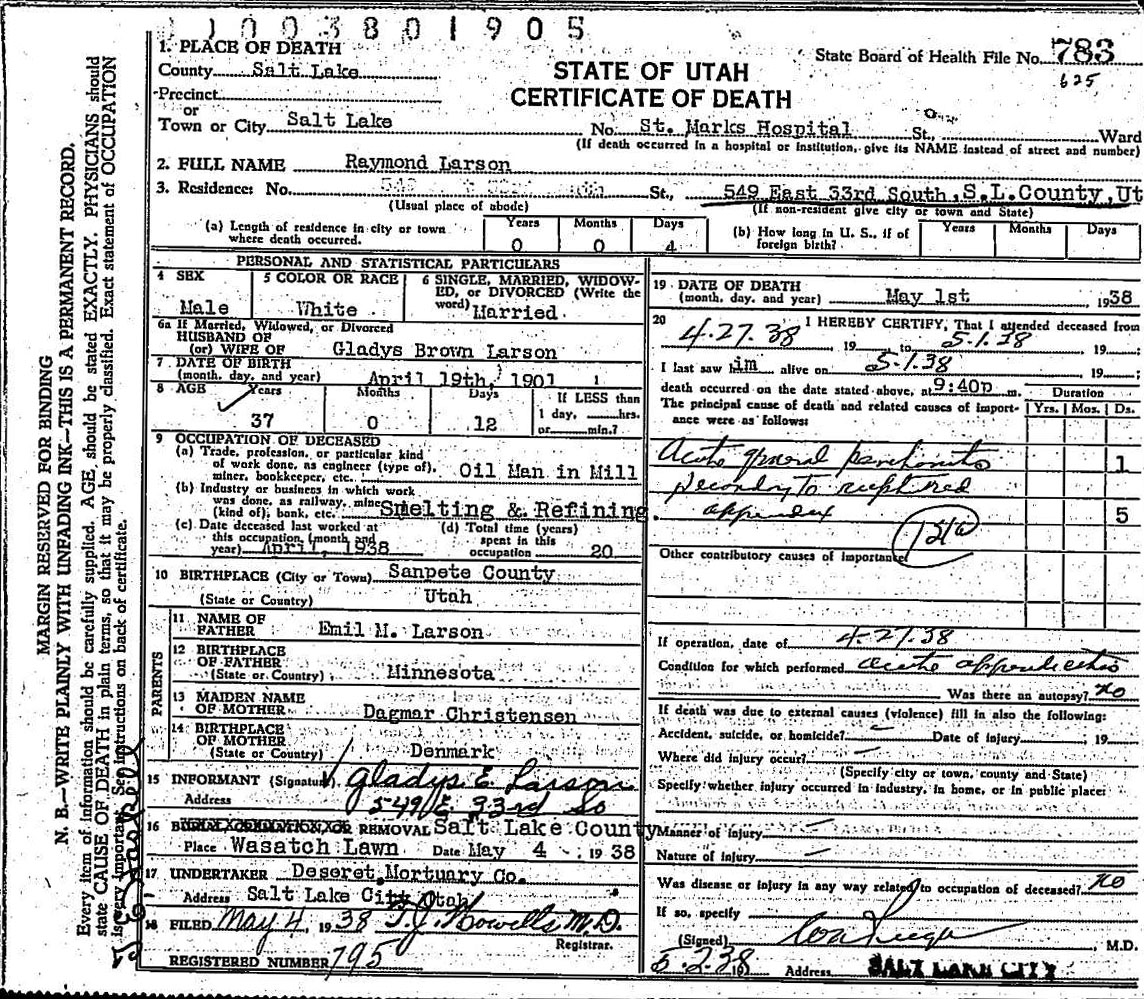 1003801905
1. PLACE OF DEATH
County Salt Lake
Precinct
or
Town or City Salt Lake
STATE OF UTAH
CERTIFICATE OF DEATH
State Board of Health File No. 783
625
No. St. Marks Hospital St., Ward
(If death occurred in a hospital or institution, give its NAME instead of street and number)
2. FULL NAME Raymond Larson
3. Residence: No. 549 St., 549 East 33rd South, S.L.County, Ut
(Usual place of abode) (If non-resident give city or town and State)
(a) Length of residence in city or town where death occurred. Years 0 Months 0 Days 4
(b) How long in U. S., if of foreign birth? Years Months Days
PERSONAL AND STATISTICAL PARTICULARS
4 SEX Male
5 COLOR OR RACE White
6 SINGLE, MARRIED, WIDOWED, or DIVORCED (Write the word) Married
6a If Married, Widowed, or Divorced
HUSBAND OF
(or) WIFE OF Gladys Brown Larson
7 DATE OF BIRTH
(month, day, and year) April 19th, 1901
8 AGE Years 37 Months 0 Days 12 If LESS than 1 day, hrs. or min.?
9 OCCUPATION OF DECEASED
(a) Trade, profession, or particular kind of work done, as engineer (type of), miner, bookkeeper, etc. Oil Man in Mill
(b) Industry or business in which work was done, as railway, mine (kind of), bank, etc. Smelting & Refining
(c) Date deceased last worked at this occupation (month and year) April, 1938
(d) Total time (years) spent in this occupation 20
10 BIRTHPLACE (City or Town) Sanpete County
(State or Country) Utah
PARENTS
11 NAME OF FATHER Emil M. Larson
12 BIRTHPLACE OF FATHER
(State or Country) Minnesota
13 MAIDEN NAME OF MOTHER Dagmar Christensen
14 BIRTHPLACE OF MOTHER
(State or Country) Denmark
15 INFORMANT (Signature) Gladys E Larson
Address 549 E 33rd So
16 BURIAL, CREMATION, OR REMOVAL Salt Lake County
Place Wasatch Lawn Date May 4 1938
17 UNDERTAKER Deseret Mortuary Co.
Address Salt Lake City, Utah
18 FILED May 4, 1938 T.J. Howells M.D.
Registrar.
REGISTERED NUMBER 795
19 DATE OF DEATH
(month, day, and year) May 1st, 1938
20 I HEREBY CERTIFY, That I attended deceased from
4-27-38 19 to 5-1-38 19 ;
I last saw him alive on 5-1-38 19 ;
death occurred on the date stated above, at 9:40p m.
Duration
The principal cause of death and related causes of importance were as follows: Yrs. Mos. Ds.
Acute general peritonitis 1
secondary to ruptured
appendix 5
121a
Other contributory causes of importance:
If operation, date of 4-27-38
Condition for which performed acute appendicitis
Was there an autopsy? no
If death was due to external causes (violence) fill in also the following:
Accident, suicide, or homicide? — Date of injury , 19
Where did injury occur? —
(Specify city or town, county and State)
Specify whether injury occurred in industry, in home, or in public place:
Manner of injury —
Nature of injury —
Was disease or injury in any way related to occupation of deceased? no
If so, specify
(Signed) M.D.
5-2-38 19 Address SALT LAKE CITY
MARGIN RESERVED FOR BINDING
N. B.—WRITE PLAINLY WITH UNFADING INK—THIS IS A PERMANENT RECORD.
Every item of information should be carefully supplied. AGE should be stated EXACTLY. PHYSICIANS should
state CAUSE OF DEATH in plain terms, so that it may be properly classified. Exact statement of OCCUPATION
is very important. See instructions on back of certificate.